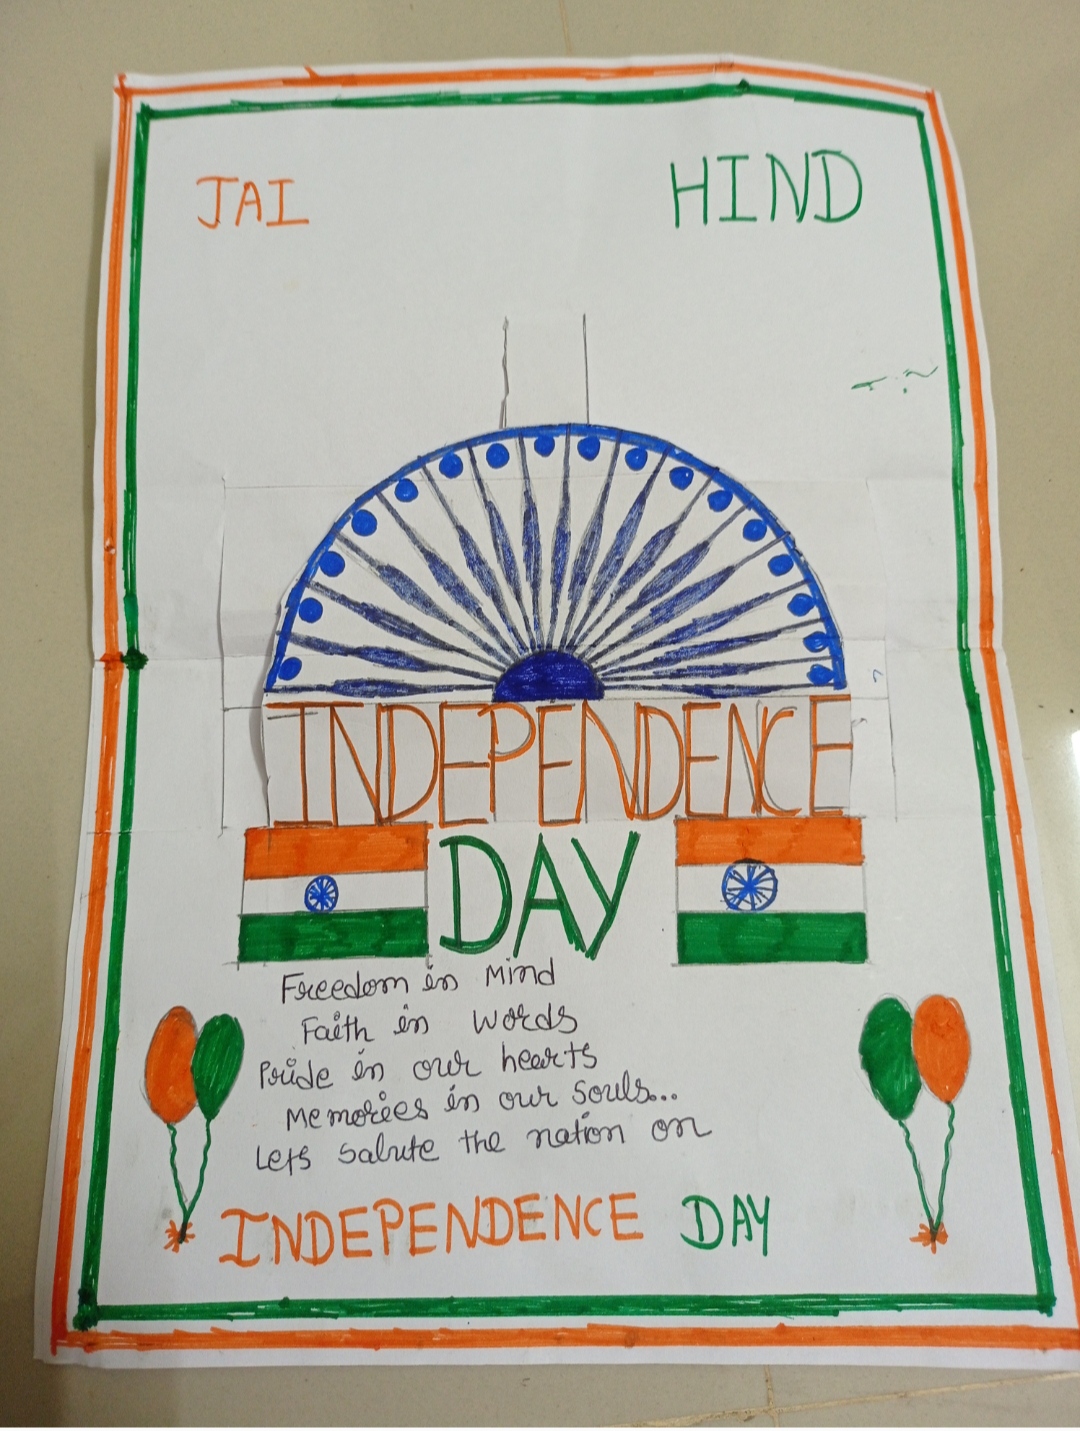 JAI HIND
INDEPENDENCE
DAY
Freedom in Mind
Faith in words
Pride in our hearts
Memories in our souls...
Lets salute the nation on
INDEPENDENCE DAY